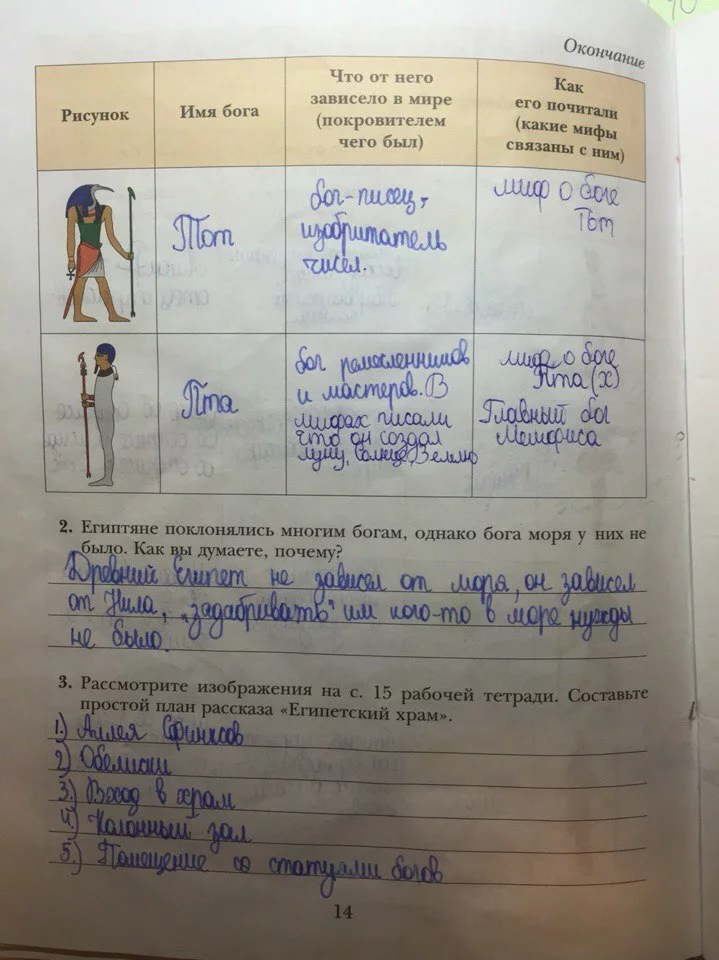 Окончание
Рисунок
Имя бога
Что от него
зависело в мире
(покровителем
чего был)
Как
его почитали
(какие мифы
связаны с ним)
Тот
бог-писец,
изобритатель
чисел.
миф о боге
Тот
Пта
бог ремесленников
и мастеров. В
мифах писали
что он создал
луну, Солнце, Землю
миф о боге
Пта (х)
Главный бог
Мемфиса
2. Египтяне поклонялись многим богам, однако бога моря у них не
было. Как вы думаете, почему?
Древний Египет не зависел от моря, он зависел
от Нила, „задабривать" им кого-то в море нужды
не было.
3. Рассмотрите изображения на с. 15 рабочей тетради. Составьте
простой план рассказа «Египетский храм».
1.) Аллея Сфинксов
2) Обелиски
3.) Вход в храм
4.) Колонный зал
5.) Помещение со статуями богов
14